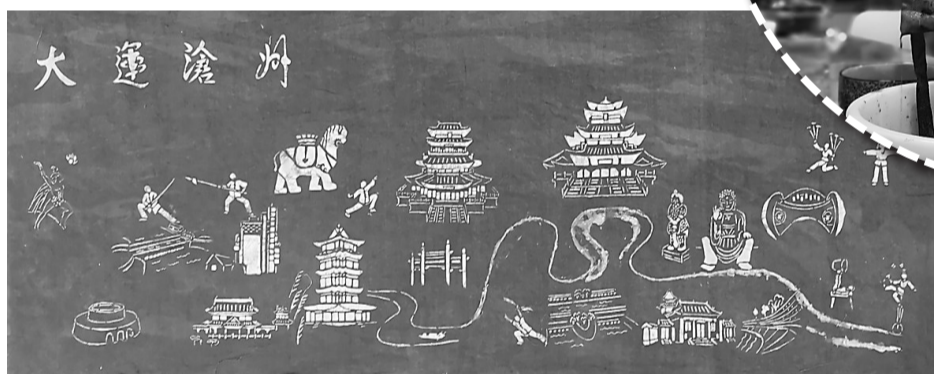 大運滄州